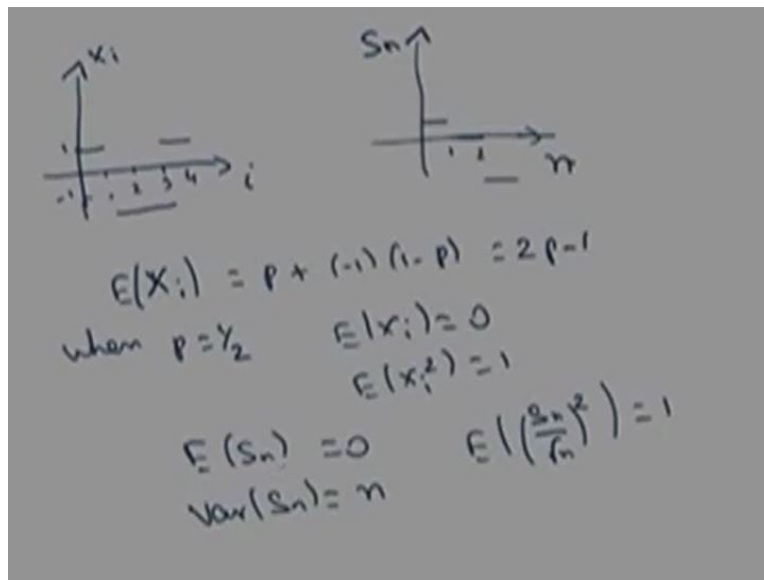 Xi
Sn
1
-1 1 2 3 4 i
1 2 n
E(Xi) = p + (-1)(1-p) = 2p-1
when p = 1/2 E(xi) = 0
E(xi²) = 1
E(Sn) = 0 E((Sn/√n)²) = 1
Var(Sn) = n